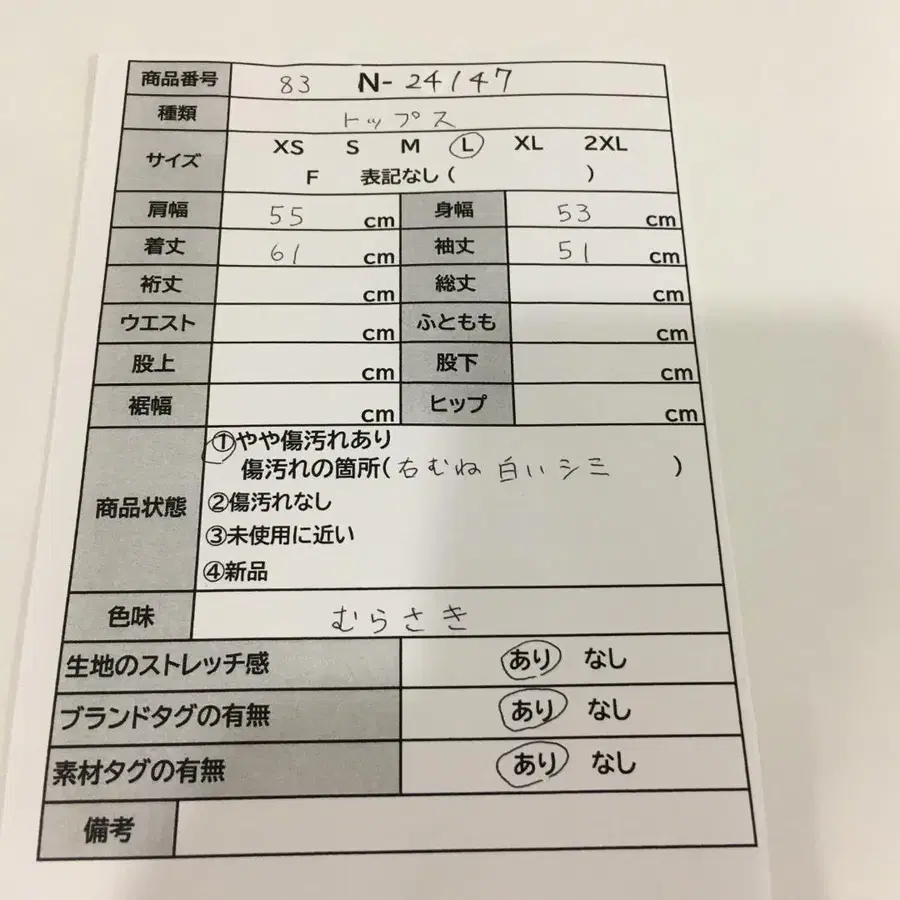 商品番号 83 N-24147
種類 トップス
サイズ XS S M L XL 2XL
F 表記なし( )
肩幅 55 cm 身幅 53 cm
着丈 61 cm 袖丈 51 cm
裄丈 cm 総丈 cm
ウエスト cm ふともも cm
股上 cm 股下 cm
裾幅 cm ヒップ cm
商品状態
①やや傷汚れあり
傷汚れの箇所(右むね 白いシミ )
②傷汚れなし
③未使用に近い
④新品
色味 むらさき
生地のストレッチ感 あり なし
ブランドタグの有無 あり なし
素材タグの有無 あり なし
備考